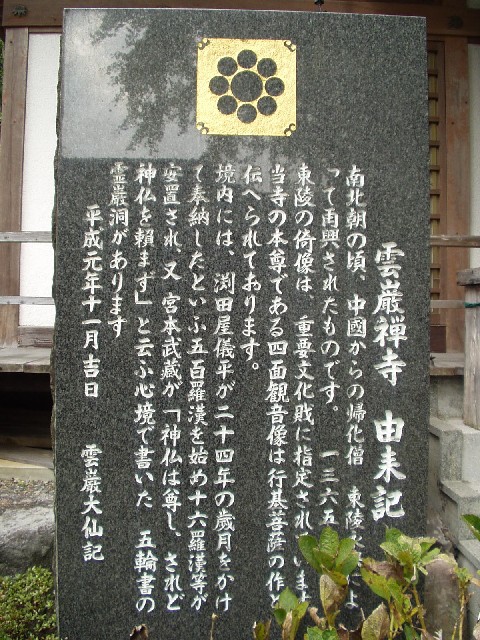 雲巌禅寺 由来記
南北朝の頃、中國からの帰化僧 東陵 によ
って再興されたものです。 一三六五
東陵の倚像は、重要文化財に指定されています
当寺の本尊である四面観音像は行基菩薩の作と
伝へられております。
境内には、渕田屋儀平が二十四年の歳月をかけ
て奉納したといふ五百羅漢を始め十六羅漢等が
安置され、又 宮本武蔵が「神仏は尊し、されど
神仏を頼まず」と云ふ心境で書いた 五輪書の
霊巌洞があります
平成元年十一月吉日 雲巌大仙記